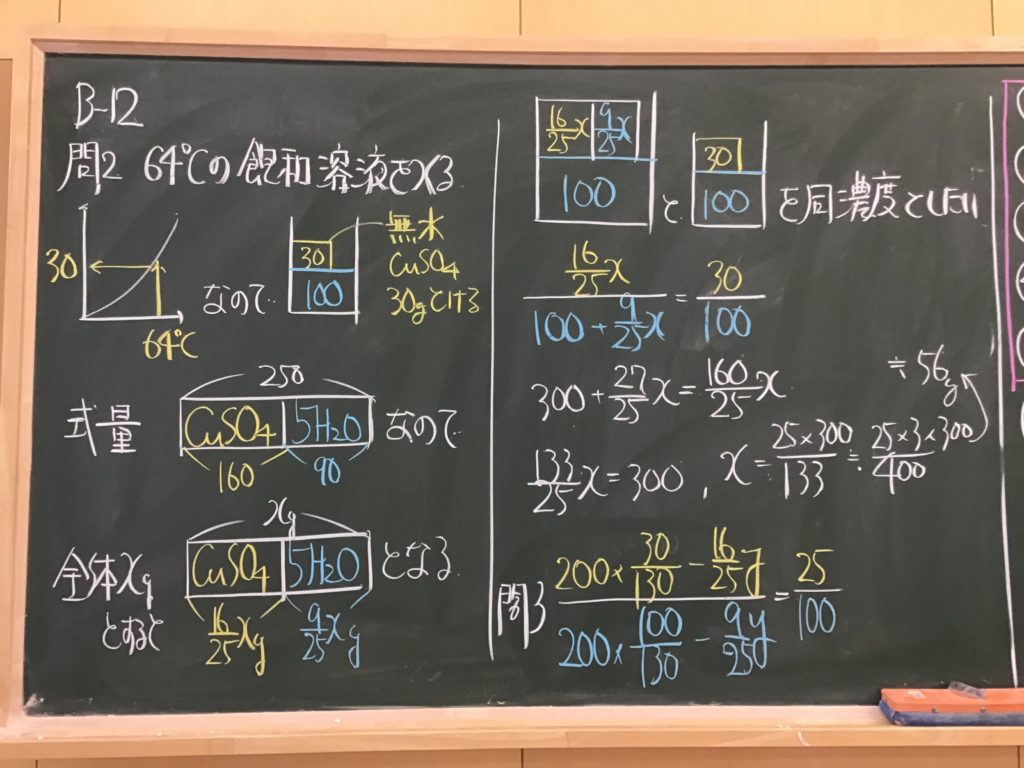 B-12
問2 64℃の飽和溶液をつくる
30
64℃
なので
30
100
無水
CuSO4
30gとける
式量
250
CuSO4 5H2O
160 90
なので
全体xg
とすると
xg
CuSO4 5H2O
16/25 xg 9/25 xg
となる
16/25 x 9/25 x
100
と
30
100
を同濃度としたい
16/25 x / (100 + 9/25 x) = 30/100
300 + 27/25 x = 160/25 x
133/25 x = 300 , x = 25×300/133 ≒ 25×3×300/400
≒ 56g
問3 (200× 30/130 − 16/25 y) / (200× 100/130 − 9y/25) = 25/100